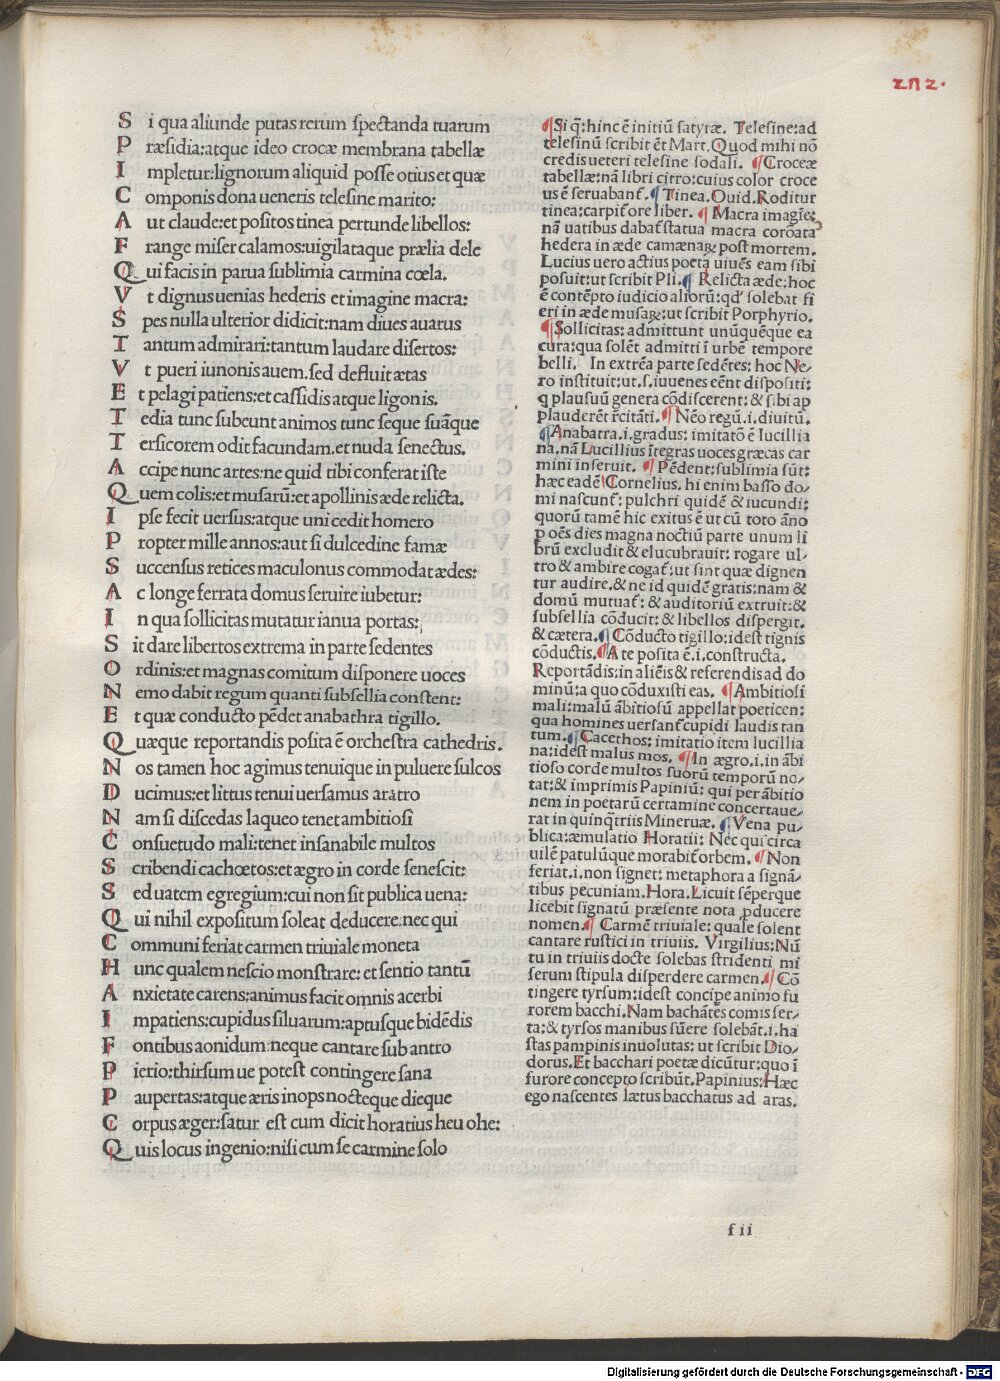 202.
S i qua aliunde putas rerum spectanda tuarum
P ræsidia:atque ideo crocæ membrana tabellæ
I mpletur:lignorum aliquid posse otius et quæ
C omponis dona ueneris telesine marito:
A ut claude:et positos tinea pertunde libellos:
F range miser calamos:uigilataque prælia dele
Q ui facis in parua sublimia carmina cœla.
V t dignus uenias hederis et imagine macra:
S pes nulla ulterior didicit:nam diues auarus
T antum admirari:tantum laudare disertos:
V t pueri iunonis auem.sed defluit ætas
E t pelagi patiens:et cassidis atque ligonis.
T edia tunc subeunt animos tunc seque suãque
T ersicorem odit facundam.et nuda senectus.
A ccipe nunc artes:ne quid tibi conferat iste
Q uem colis:et musarũ:et apollinis æde relicta.
I pse fecit uersus:atque uni cedit homero
P ropter mille annos:aut si dulcedine famæ
S uccensus retices maculonus commodat ædes:
A c longe ferrata domus seruire iubetur:
I n qua sollicitas mutatur ianua portas:
S it dare libertos extrema in parte sedentes
O rdinis:et magnas comitum disponere uoces
N emo dabit regum quanti subsellia constent:
E t quæ conducto pẽdet anabathra tigillo.
Q uæque reportandis posita ẽ orchestra cathedris.
N os tamen hoc agimus tenuique in puluere sulcos
D ucimus:et littus tenui uersamus aratro
N am si discedas laqueo tenet ambitiosi
C onsuetudo mali:tenet insanabile multos
S cribendi cachoetos:et ægro in corde senescit:
S ed uatem egregium:cui non sit publica uena:
Q ui nihil expositum soleat deducere:nec qui
C ommuni feriat carmen triuiale moneta
H unc qualem nescio monstrare: et sentio tantũ
A nxietate carens:animus facit omnis acerbi
I mpatiens:cupidus siluarum:aptusque bidẽdis
F ontibus aonidum:neque cantare sub antro
P ierio:thirsum ue potest contingere sana
P aupertas:atque æris inops nocteque dieque
C orpus æger:satur est cum dicit horatius heu ohe:
Q uis locus ingenio:nisi cum se carmine solo
¶Si q̃:hinc ẽ initiũ satyræ. Telesine:ad
telesinũ scribit ẽt Mart.Quod mihi nõ
credis ueteri telesine sodali. ¶Croceæ
tabellæ:nã libri citro:cuius color croce
us ẽ seruabant̃.¶Tinea.Ouid.Roditur
tinea:carpit̃ ore liber. ¶Macra imagĩe:
nã uatibus dabat̃ statua macra corõata
hedera in æde camænaꝝ post mortem.
Lucius uero actius poeta uiuẽs eam sibi
posuit:ut scribit Pli.¶Relicta æde:hoc
ẽ contẽpto iudicio aliorũ:qđ solebat fi
eri in æde musaꝝ:ut scribit Porphyrio.
¶Sollicitas: admittunt unũquẽque ea
cura:qua solẽt admitti ĩ urbẽ tempore
belli. In extrẽa parte sedẽtes: hoc Ne/
ro instituit:ut.s.iuuenes eẽnt dispositi:
q plausuũ genera cõdiscerent:& sibi ap
plauderẽt r̃citãti.¶Nẽo regũ.i.diuitũ.
¶Anabatra.i.gradus: imitatõ ẽ lucillia
na.nã Lucillius ĩtegras uoces græcas car
mini inseruit. ¶Pẽdent:sublimia sũt:
hæc eadẽ Cornelius. hi enim basso do/
mi nascunt̃: pulchri quidẽ & iucundi:
quorũ tamẽ hic exitus ẽ ut cũ toto ãno
p oẽs dies magna noctiũ parte unum li
brũ excludit & elucubrauit: rogare ul/
tro & ambire cogat̃: ut sint quæ dignen
tur audire.& ne id quidẽ gratis:nam &
domũ mutuat̃: & auditoriũ extruit:&
subsellia cõducit: & libellos dispergit.
& cætera.¶Cõducto tigillo:idest tignis
cõductis.¶A te posita ẽ.i.constructa.
Reportãdis:in aliẽis & referendis ad do
minũ:a quo cõduxisti eas. ¶Ambitiosi
mali:malũ ãbitiosũ appellat poeticen:
qua homines uersant̃ cupidi laudis tan
tum.¶Cacethos: imitatio item lucillia
na:idest malus mos.¶In ægro.i.in ãbi
tioso corde multos suorũ temporũ no/
tat:& imprimis Papiniũ: qui per ãbitio
nem in poetarũ certamine concertaue/
rat in quinq̃triis Mineruæ. ¶Vena pu/
blica:æmulatio Horatii: Nec qui circa
uilẽ patulũque morabit̃ orbem. ¶Non
feriat.i.non signet: metaphora a signã/
tibus pecuniam.Hora.Licuit sẽperque
licebit signatũ præsente nota pducere
nomen.¶Carmẽ triuiale: quale solent
cantare rustici in triuiis. Virgilius:Nũ
tu in triuiis docte solebas stridenti mi
serum stipula disperdere carmen.¶Cõ
tingere tyrsum:idest concipe animo fu
rorem bacchi.Nam bachãtẽs comis ser/
ta:& tyrsos manibus sũere solebãt.i.ha
stas pampinis inuolutas: ut scribit Dio/
dorus.Et bacchari poetæ dicũtur:quo ĩ
furore concepto scribũt.Papinius:Hæc
ego nascentes lætus bacchatus ad aras.
f ii
Digitalisierung gefördert durch die Deutsche Forschungsgemeinschaft - DFG